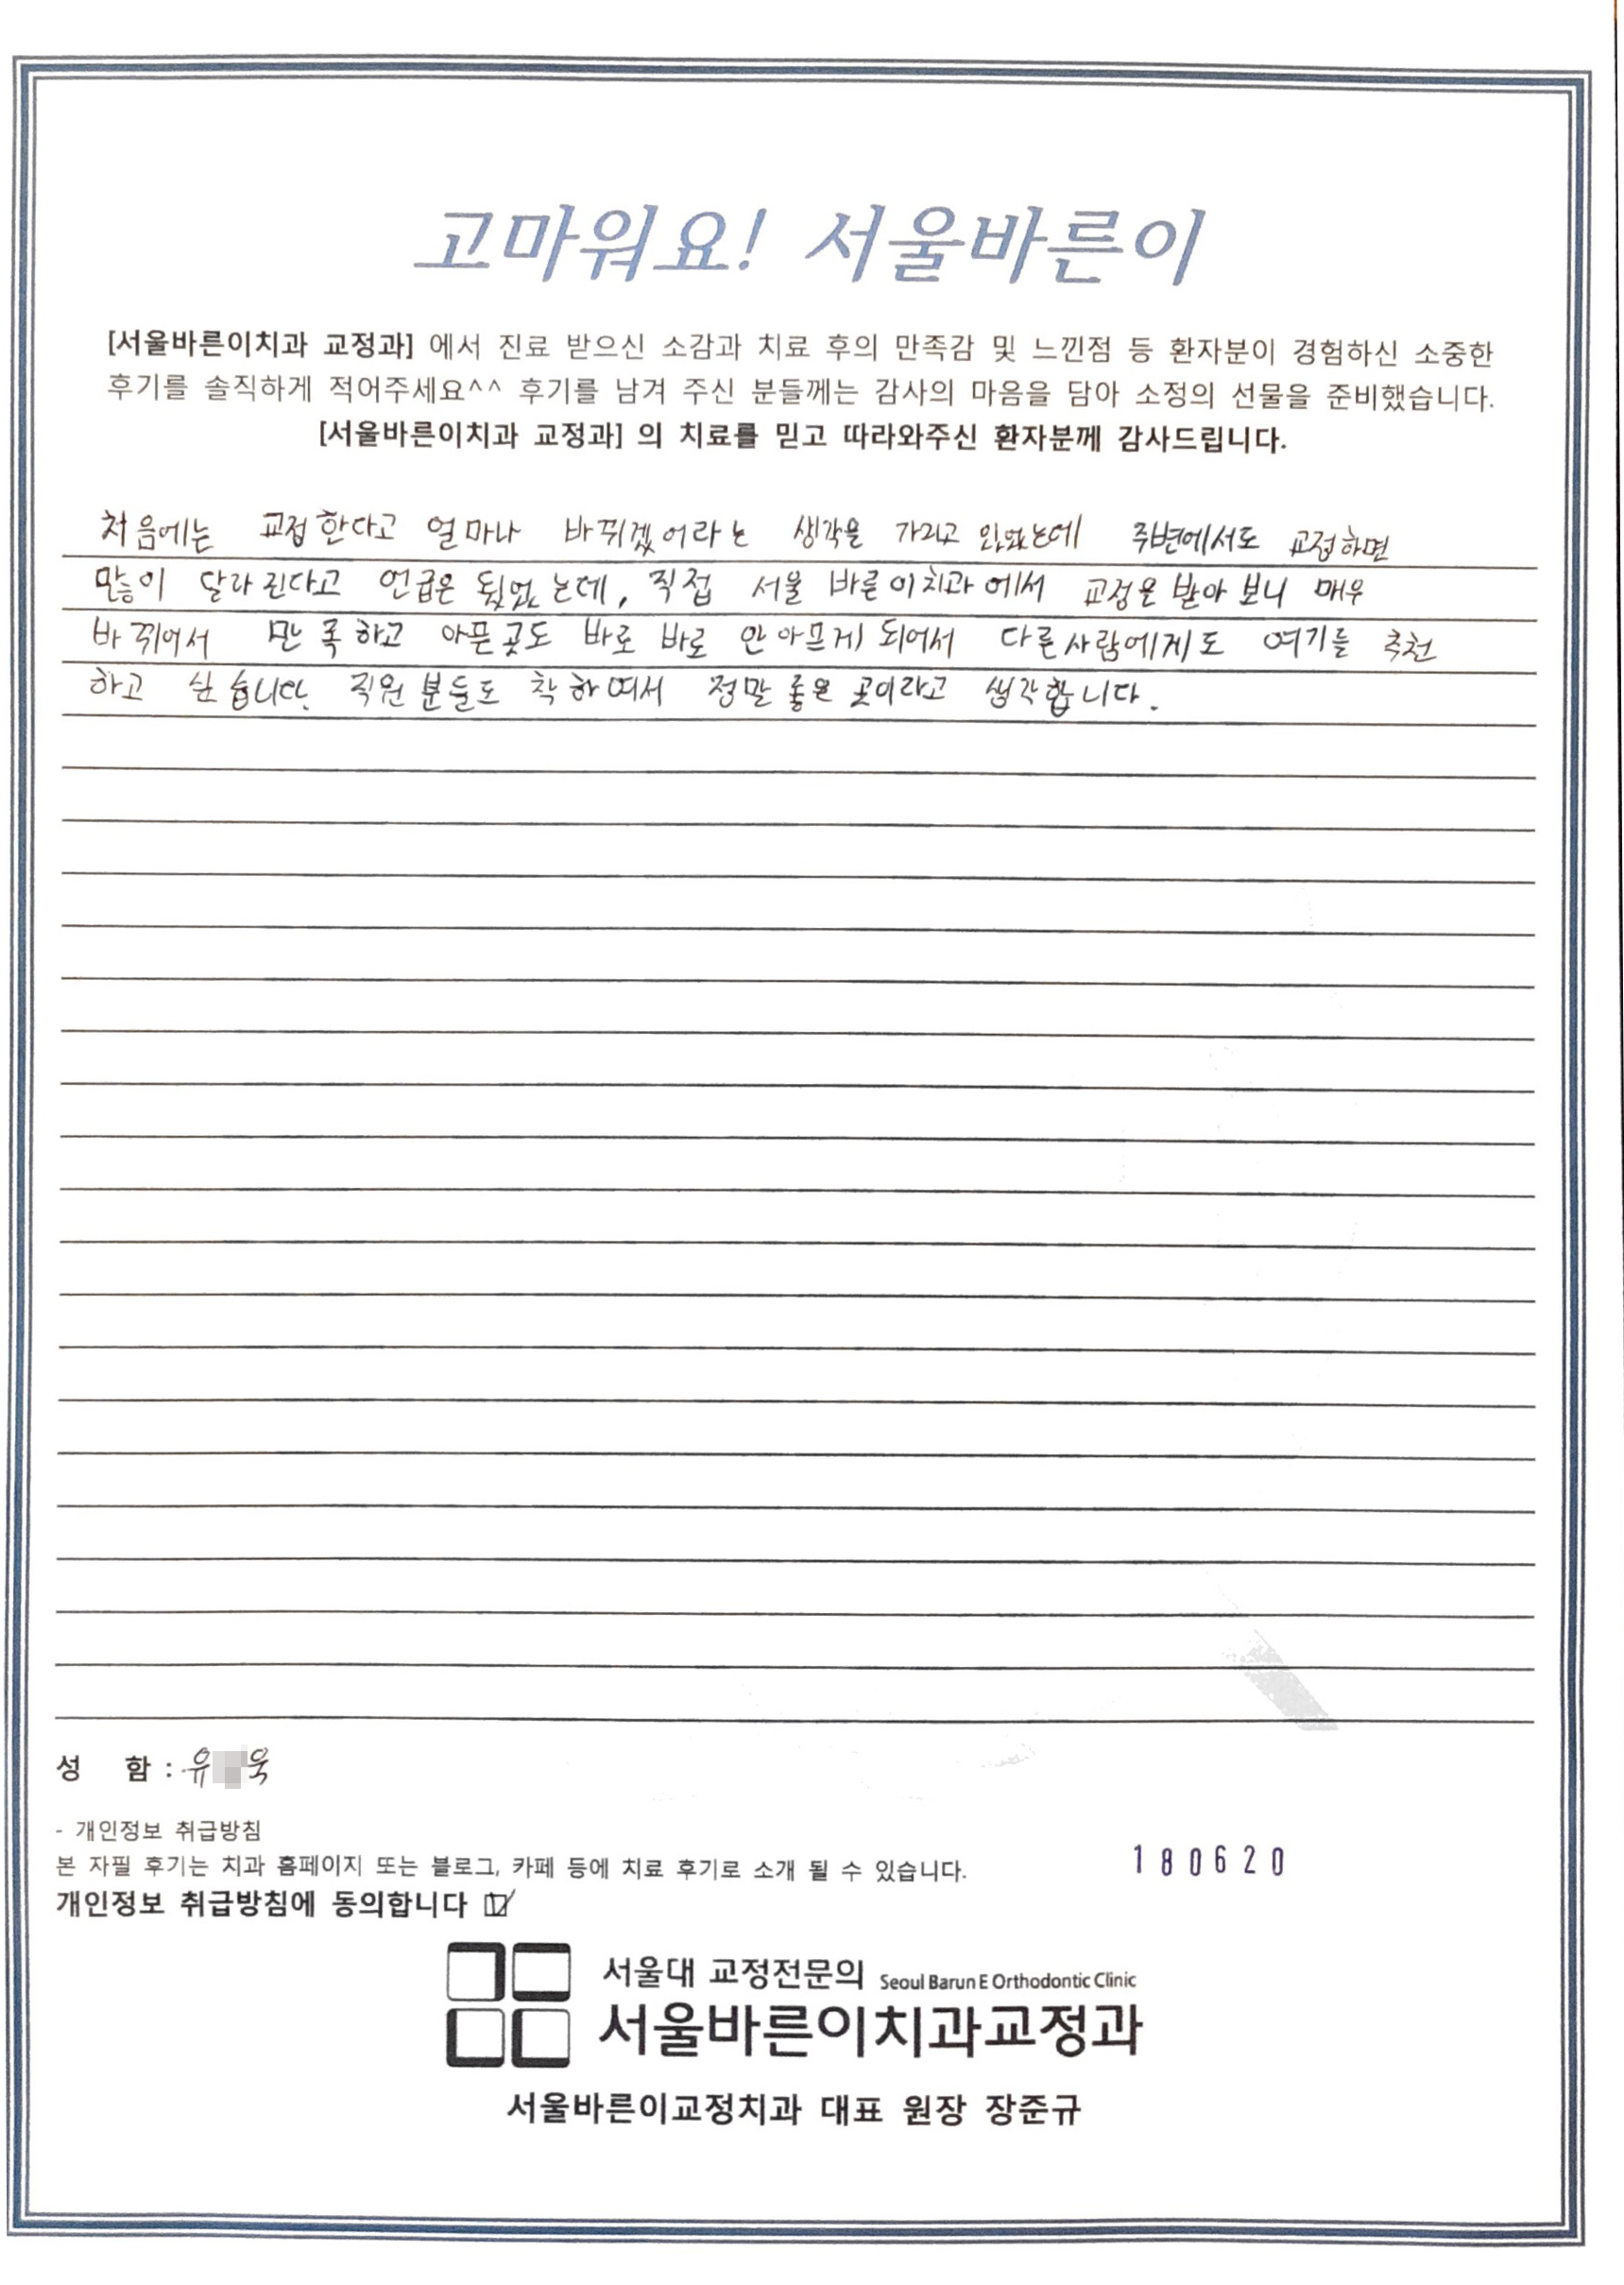 고마워요! 서울바른이
[서울바른이치과 교정과] 에서 진료 받으신 소감과 치료 후의 만족감 및 느낀점 등 환자분이 경험하신 소중한
후기를 솔직하게 적어주세요^^ 후기를 남겨 주신 분들께는 감사의 마음을 담아 소정의 선물을 준비했습니다.
[서울바른이치과 교정과] 의 치료를 믿고 따라와주신 환자분께 감사드립니다.
처음에는 교정한다고 얼마나 바뀌겠어라는 생각을 가지고 있었는데 주변에서도 교정하면
많이 달라진다고 언급은 됬었는데, 직접 서울 바른이치과에서 교정을 받아 보니 매우
바뀌어서 만족하고 아픈곳도 바로 바로 안아프게 되어서 다른사람에게도 여기를 추천
하고 싶습니다. 직원분들도 착하여서 정말 좋은 곳이라고 생각합니다.
성 함 : 유 욱
- 개인정보 취급방침
본 자필 후기는 치과 홈페이지 또는 블로그, 카페 등에 치료 후기로 소개 될 수 있습니다.
180620
개인정보 취급방침에 동의합니다
서울대 교정전문의 Seoul Barun E Orthodontic Clinic
서울바른이치과교정과
서울바른이교정치과 대표 원장 장준규